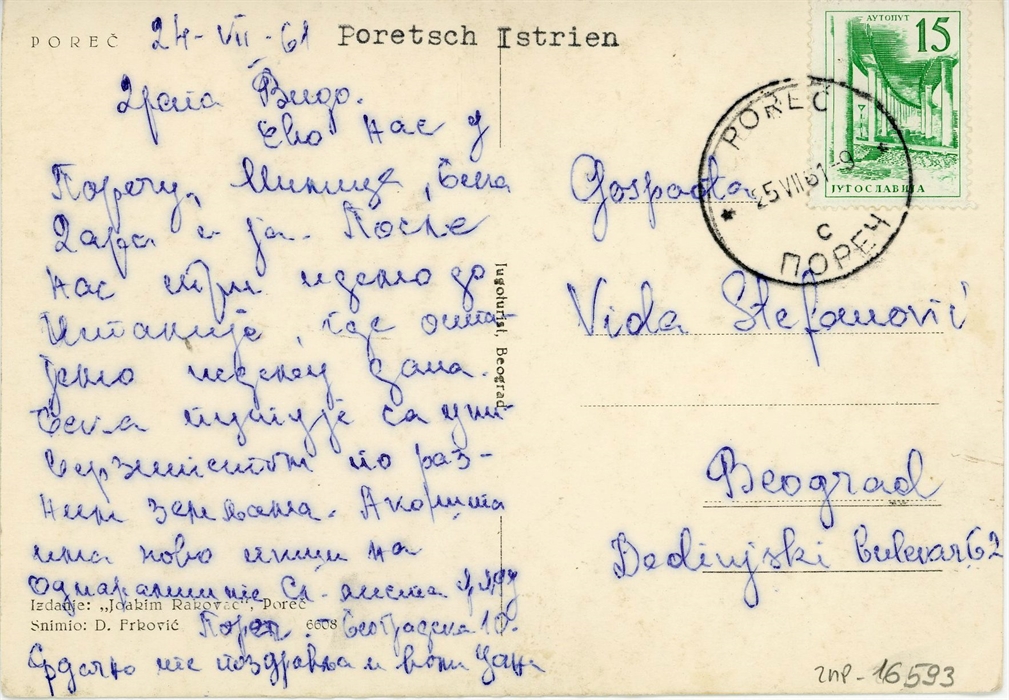 POREČ 24-VII-61 Poretsch Istrien
Драга Видо.
Ево нас у
Поречу, Милице, Бела
Дара и ја. После
нас три идемо до
Италије, где оста-
јемо недељу дана.
Бела путује са уни-
верзитетом по раз-
ним земљама. Ако шта
има ново пиши на
Одмаралиште
Пореч. Београдска 10.
Срдачно те поздравља и воли
Izdanje: „Joakim Rakovac“, Poreč
Snimio: D. Frković 6608
Jugoturist, Beograd
АУТОПУТ 15
ЈУГОСЛАВИЈА
POREČ
25 VII 61-9
С
ПОРЕЧ
Gospođa
Vida Stefanović
Beograd
Dedinjski bulevar 62
16593